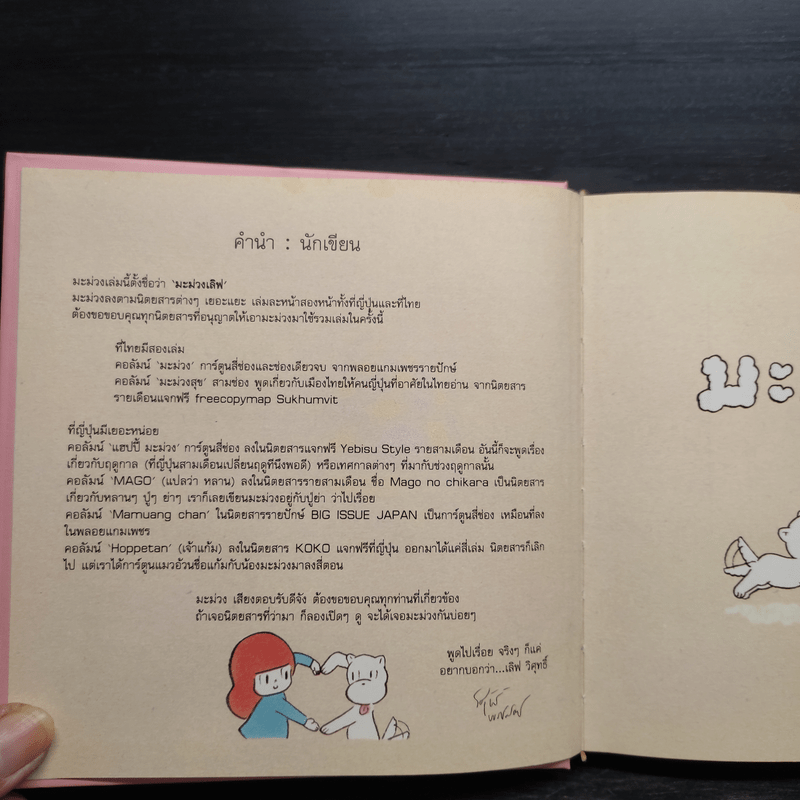 คำนำ : นักเขียน
มะม่วงเล่มนี้ตั้งชื่อว่า 'มะม่วงเลิฟ'
มะม่วงลงตามนิตยสารต่างๆ เยอะแยะ เล่มละหน้าสองหน้าทั้งที่ญี่ปุ่นและที่ไทย
ต้องขอขอบคุณทุกนิตยสารที่อนุญาตให้เอามะม่วงมาใช้รวมเล่มในครั้งนี้
ที่ไทยมีสองเล่ม
คอลัมน์ 'มะม่วง' การ์ตูนสี่ช่องและช่องเดียวจบ จากพลอยแกมเพชรรายปักษ์
คอลัมน์ 'มะม่วงสุข' สามช่อง พูดเกี่ยวกับเมืองไทยให้คนญี่ปุ่นที่อาศัยในไทยอ่าน จากนิตยสาร
รายเดือนแจกฟรี freecopymap Sukhumvit
ที่ญี่ปุ่นมีเยอะหน่อย
คอลัมน์ 'แฮปปี้ มะม่วง' การ์ตูนสี่ช่อง ลงในนิตยสารแจกฟรี Yebisu Style รายสามเดือน อันนี้ก็จะพูดเรื่อง
เกี่ยวกับฤดูกาล (ที่ญี่ปุ่นสามเดือนเปลี่ยนฤดูทีนึงพอดี) หรือเทศกาลต่างๆ ที่มากับช่วงฤดูกาลนั้น
คอลัมน์ 'MAGO' (แปลว่า หลาน) ลงในนิตยสารรายสามเดือน ชื่อ Mago no chikara เป็นนิตยสาร
เกี่ยวกับหลานๆ ปู่ๆ ย่าๆ เราก็เลยเขียนมะม่วงอยู่กับปู่ย่า ว่าไปเรื่อย
คอลัมน์ 'Mamuang chan' ในนิตยสารรายปักษ์ BIG ISSUE JAPAN เป็นการ์ตูนสี่ช่อง เหมือนที่ลง
ในพลอยแกมเพชร
คอลัมน์ 'Hoppetan' (เจ้าแก้ม) ลงในนิตยสาร KOKO แจกฟรีที่ญี่ปุ่น ออกมาได้แค่สี่เล่ม นิตยสารก็เลิก
ไป แต่เราได้การ์ตูนแมวอ้วนชื่อแก้มกับน้องมะม่วงมาลงสี่ตอน
มะม่วง เสียงตอบรับดีจัง ต้องขอขอบคุณทุกท่านที่เกี่ยวข้อง
ถ้าเจอนิตยสารที่ว่ามา ก็ลองเปิดๆ ดู จะได้เจอมะม่วงกันบ่อยๆ
พูดไปเรื่อย จริงๆ ก็แค่
อยากบอกว่า...เลิฟ วิศุทธิ์
มะ